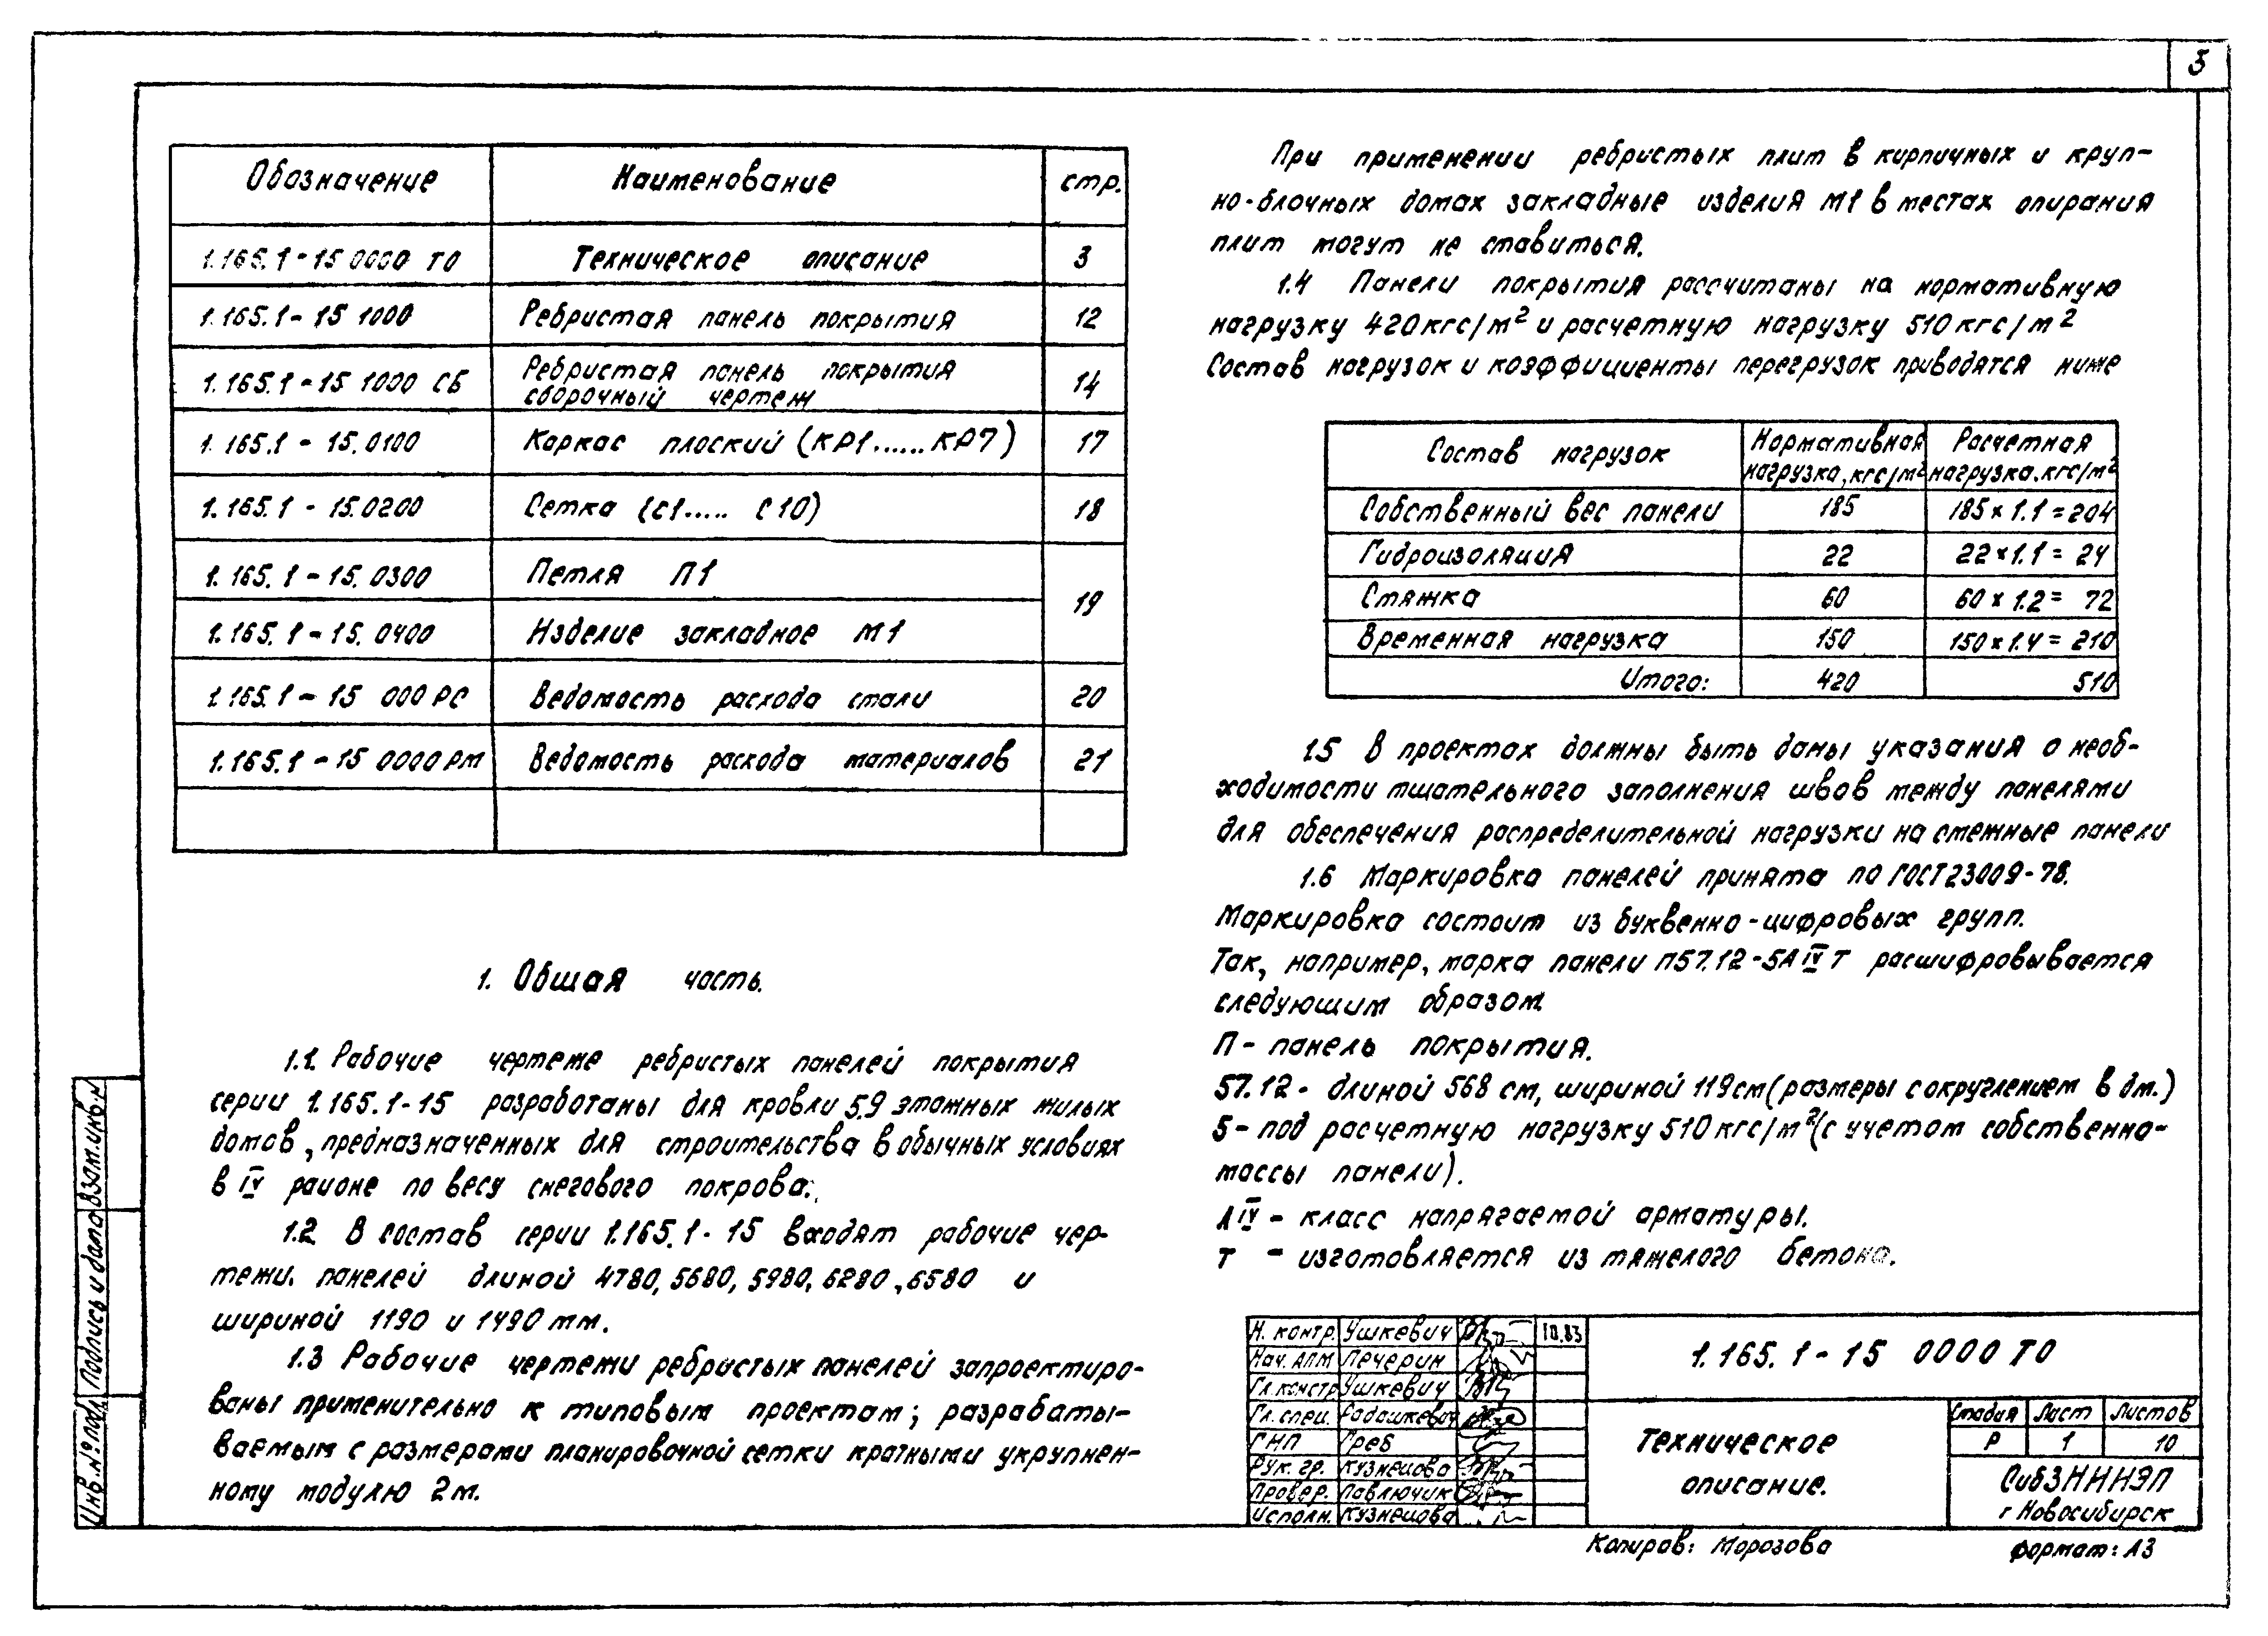 3
Обозначение Наименование стр.
1.165.1-15 0000 ТО Техническое описание 3
1.165.1-15 1000 Ребристая панель покрытия 12
1.165.1-15 1000 СБ Ребристая панель покрытия
сборочный чертеж 14
1.165.1-15.0100 Каркас плоский (КР1......КР7) 17
1.165.1-15.0200 Сетка (С1..... С10) 18
1.165.1-15.0300 Петля П1
19
1.165.1-15.0400 Изделие закладное М1
1.165.1-15 000 РС Ведомость расхода стали 20
1.165.1-15 0000 РМ Ведомость расхода материалов 21
1. Общая часть.
1.1. Рабочие чертеже ребристых панелей покрытия
серии 1.165.1-15 разработаны для кровли 5.9 этажных жилых
домов, предназначенных для строительства в обычных условиях
в IV районе по весу снегового покрова.
1.2 В состав серии 1.165.1-15 входят рабочие чер-
тежи. панелей длиной 4780, 5680, 5980, 6280, 6580 и
шириной 1190 и 1490 мм.
1.3 Рабочие чертежи ребристых панелей запроектиро-
ваны применительно к типовым проектам; разрабаты-
ваемым с размерами планировочной сетки кратными укрупнен-
ному модулю 2м.
При применении ребристых плит в кирпичных и круп-
но-блочных домах закладные изделия М1 в местах опирания
плит могут не ставиться.
1.4 Панели покрытия рассчитаны на нормативную
нагрузку 420 кгс/м² и расчетную нагрузку 510 кгс/м²
Состав нагрузок и коэффициенты перегрузок приводятся ниже
Состав нагрузок Нормативная нагрузка, кгс/м² Расчетная нагрузка. кгс/м²
Собственный вес панели 185 185 х 1.1 = 204
Гидроизоляция 22 22 х 1.1 = 24
Стяжка 60 60 х 1.2 = 72
Временная нагрузка 150 150 х 1.4 = 210
Итого: 420 510
1.5 В проектах должны быть даны указания о необ-
ходимости тщательного заполнения швов между панелями
для обеспечения распределительной нагрузки на смежные панели
1.6 Маркировка панелей принята по ГОСТ 23009-78.
Маркировка состоит из буквенно-цифровых групп.
Так, например, марка панели П57.12-5А IV Т расшифровывается
следующим образом.
П - панель покрытия.
57.12 - длиной 568 см, шириной 119 см (размеры с округлением в дм.)
5 - под расчетную нагрузку 510 кгс/м² (с учетом собственно-
массы панели).
А IV - класс напрягаемой арматуры.
Т - изготовляется из тяжелого бетона.
Инв.№ подл. Подпись и дата Взам.инв.№
Н. контр. Ушкевич 10.83
Нач. АПМ Печерин
Гл.констр Ушкевич
Гл. спец. Садашкевич
ГИП Греб
Рук. гр. Кузнецова
Провер. Павлючик
Исполн. Кузнецова
1.165.1-15 0000 ТО
Техническое
описание.
Стадия Лист Листов
Р 1 10
СибЗНИИЭП
г Новосибирск
Копиров: Морозова формат: А3